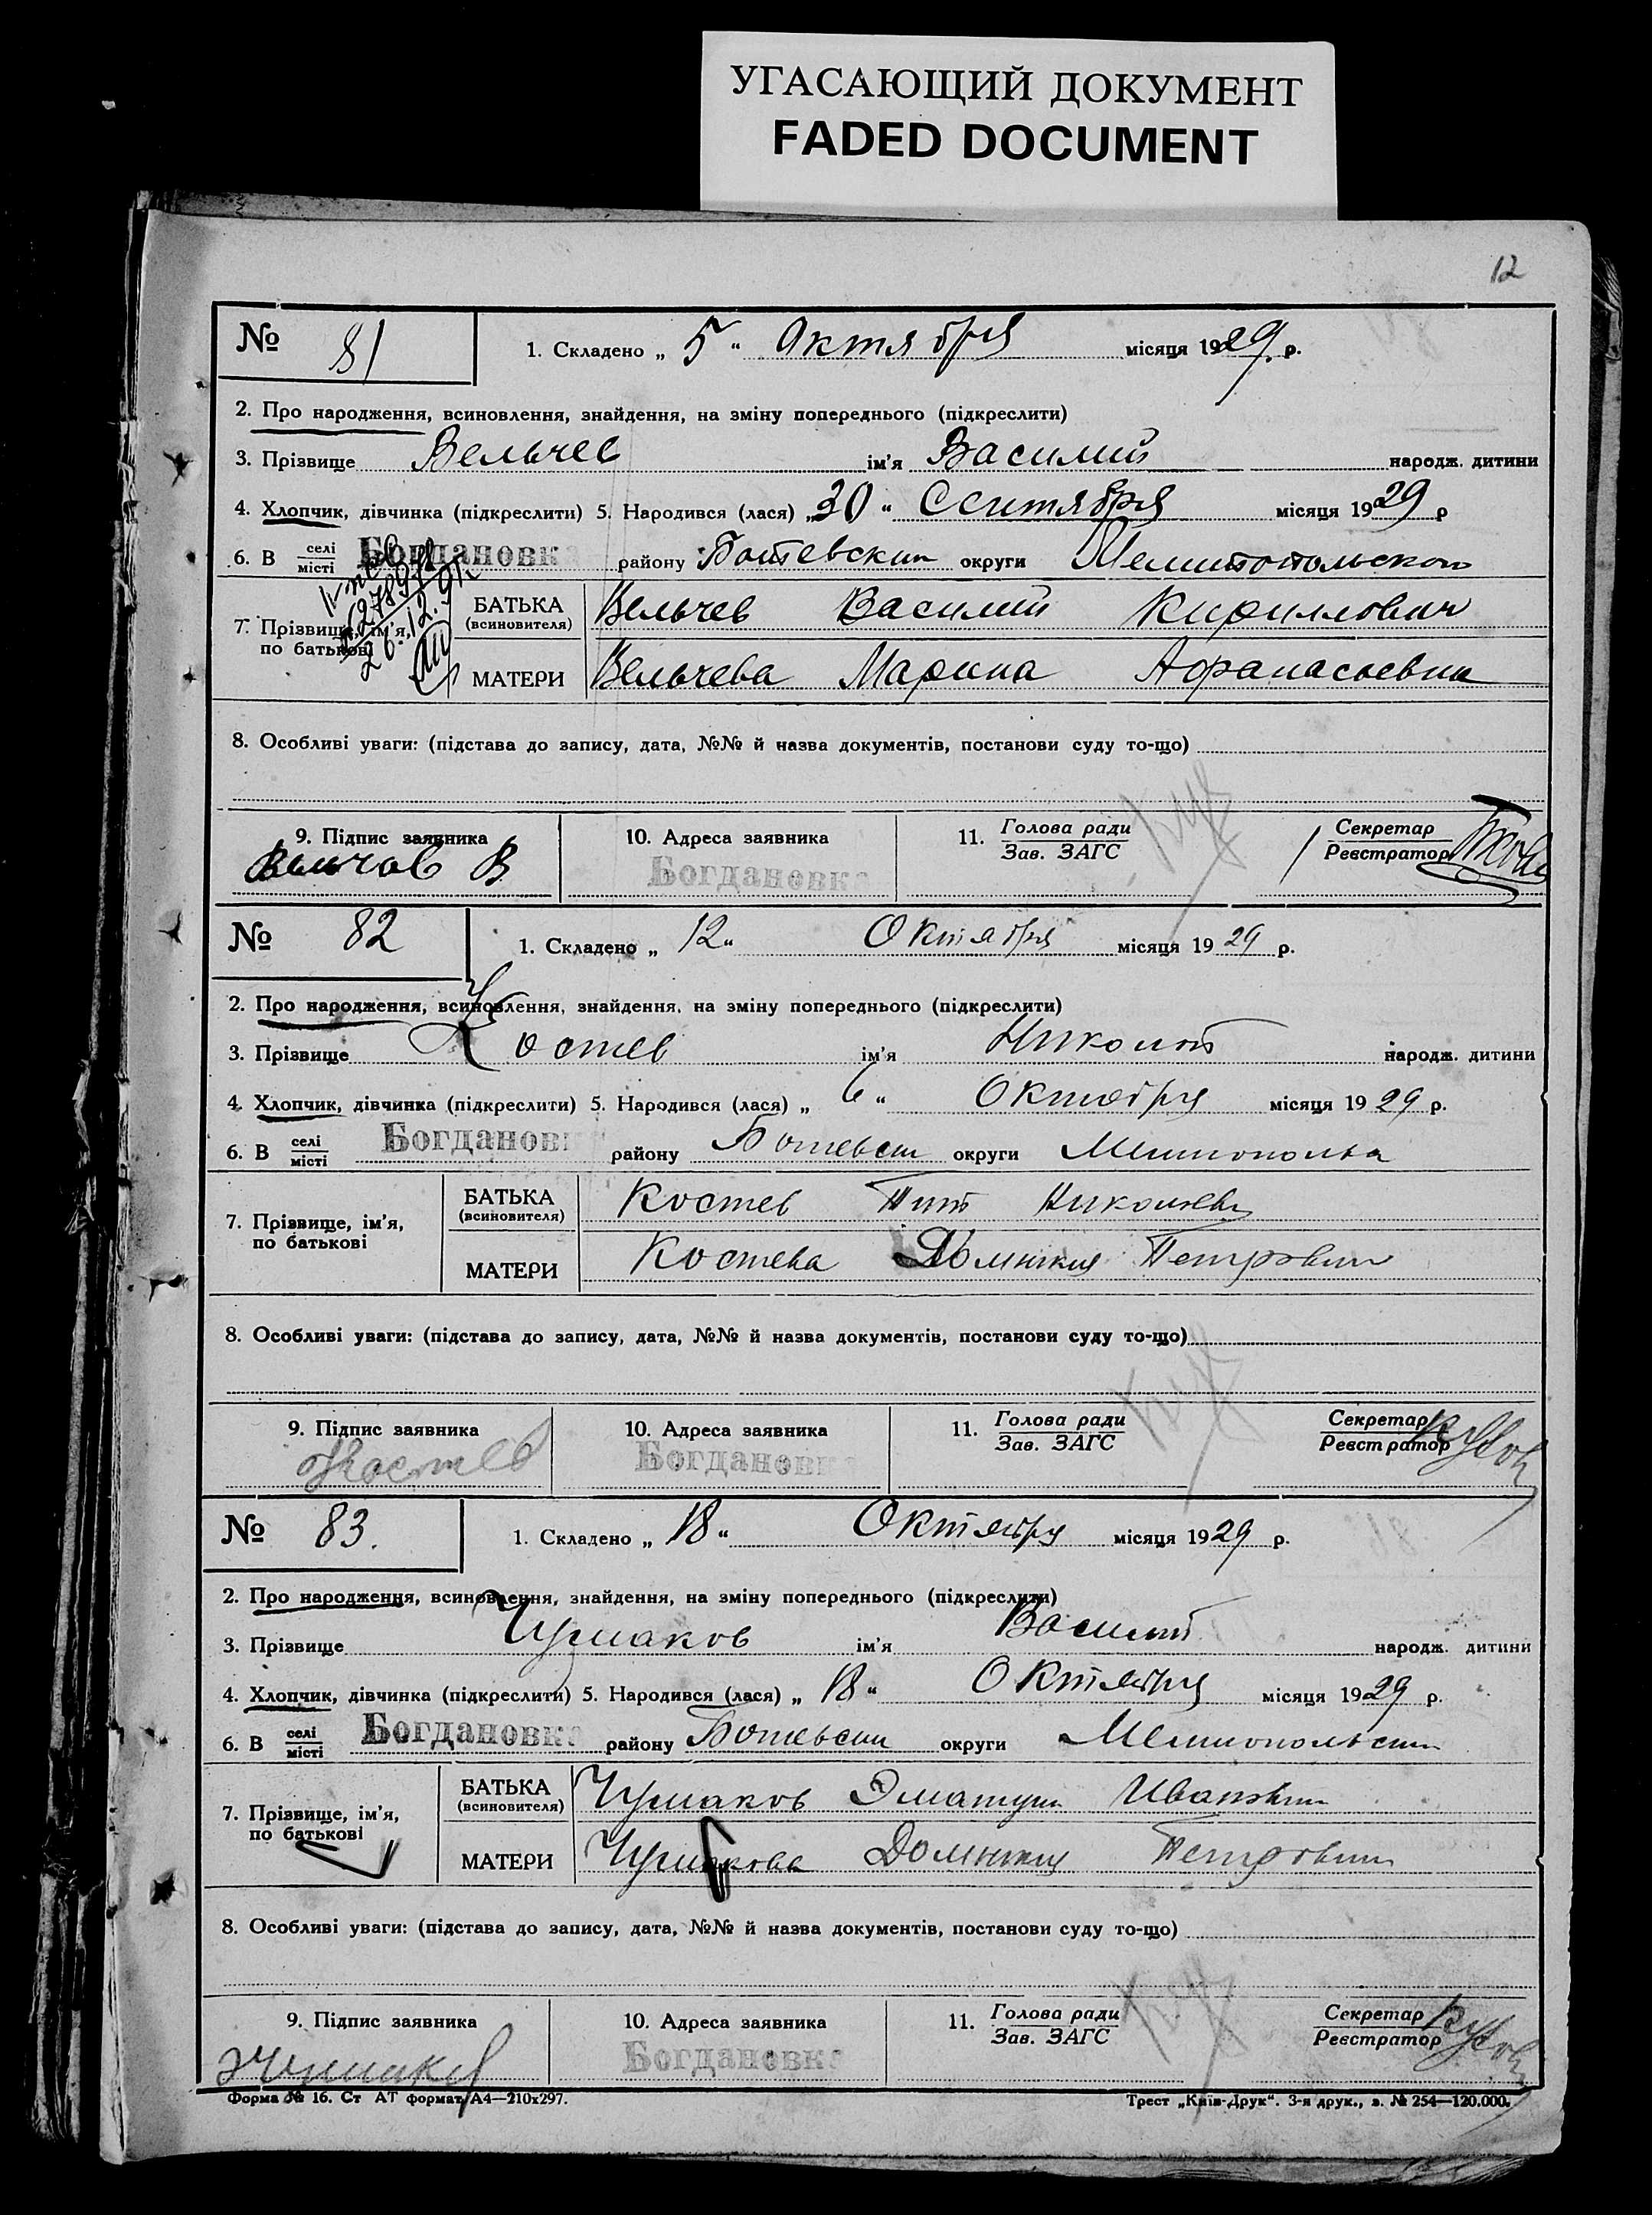 УГАСАЮЩИЙ ДОКУМЕНТ
FADED DOCUMENT
12
№ 81 1. Складено „ 5 “ Октября місяця 1929 р.
2. Про народження, всиновлення, знайдення, на зміну попереднього (підкреслити)
3. Прізвище Вельчев ім'я Василий народж. дитини
4. Хлопчик, дівчинка (підкреслити) 5. Народився (лася) „ 30 “ Сентября місяця 1929 р
6. В селі місті Богдановка району Ботевский округи Мелитопольской
7. Прізвище, ім'я, по батькові
26.12.91
БАТЬКА (всиновителя) Вельчев Василий Кириллович
МАТЕРИ Вельчева Марина Афанасьевна
8. Особливі уваги: (підстава до запису, дата, №№ й назва документів, постанови суду то-що)
9. Підпис заявника 10. Адреса заявника 11. Голова ради Секретар
Зав. ЗАГС Реєстратор
Вельчев В Богдановка
№ 82 1. Складено „ 12 “ Октября місяця 1929 р.
2. Про народження, всиновлення, знайдення, на зміну попереднього (підкреслити)
3. Прізвище Костев ім'я Николай народж. дитини
4. Хлопчик, дівчинка (підкреслити) 5. Народився (лася) „ 6 “ Октября місяця 1929 р.
6. В селі місті Богдановк району Ботевски округи
7. Прізвище, ім'я, по батькові
БАТЬКА (всиновителя) Костев
МАТЕРИ Костева Домникия Петровна
8. Особливі уваги: (підстава до запису, дата, №№ й назва документів, постанови суду то-що)
9. Підпис заявника 10. Адреса заявника 11. Голова ради Секретар
Зав. ЗАГС Реєстратор
Костев Богдановк
№ 83. 1. Складено „ 18 “ Октября місяця 1929 р.
2. Про народження, всиновлення, знайдення, на зміну попереднього (підкреслити)
3. Прізвище Чумаков ім'я Василий народж. дитини
4. Хлопчик, дівчинка (підкреслити) 5. Народився (лася) „ 18 “ Октября місяця 1929 р.
6. В селі місті Богдановка району Ботевски округи
7. Прізвище, ім'я, по батькові
БАТЬКА (всиновителя) Чумаков
МАТЕРИ Чумакова Домникия Петровна
8. Особливі уваги: (підстава до запису, дата, №№ й назва документів, постанови суду то-що)
9. Підпис заявника 10. Адреса заявника 11. Голова ради Секретар
Зав. ЗАГС Реєстратор
Богдановка
Форма № 16. Ст АТ формат А4—210х297. Трест „Київ-Друк“. 3-я друк., з. № 254—120.000.